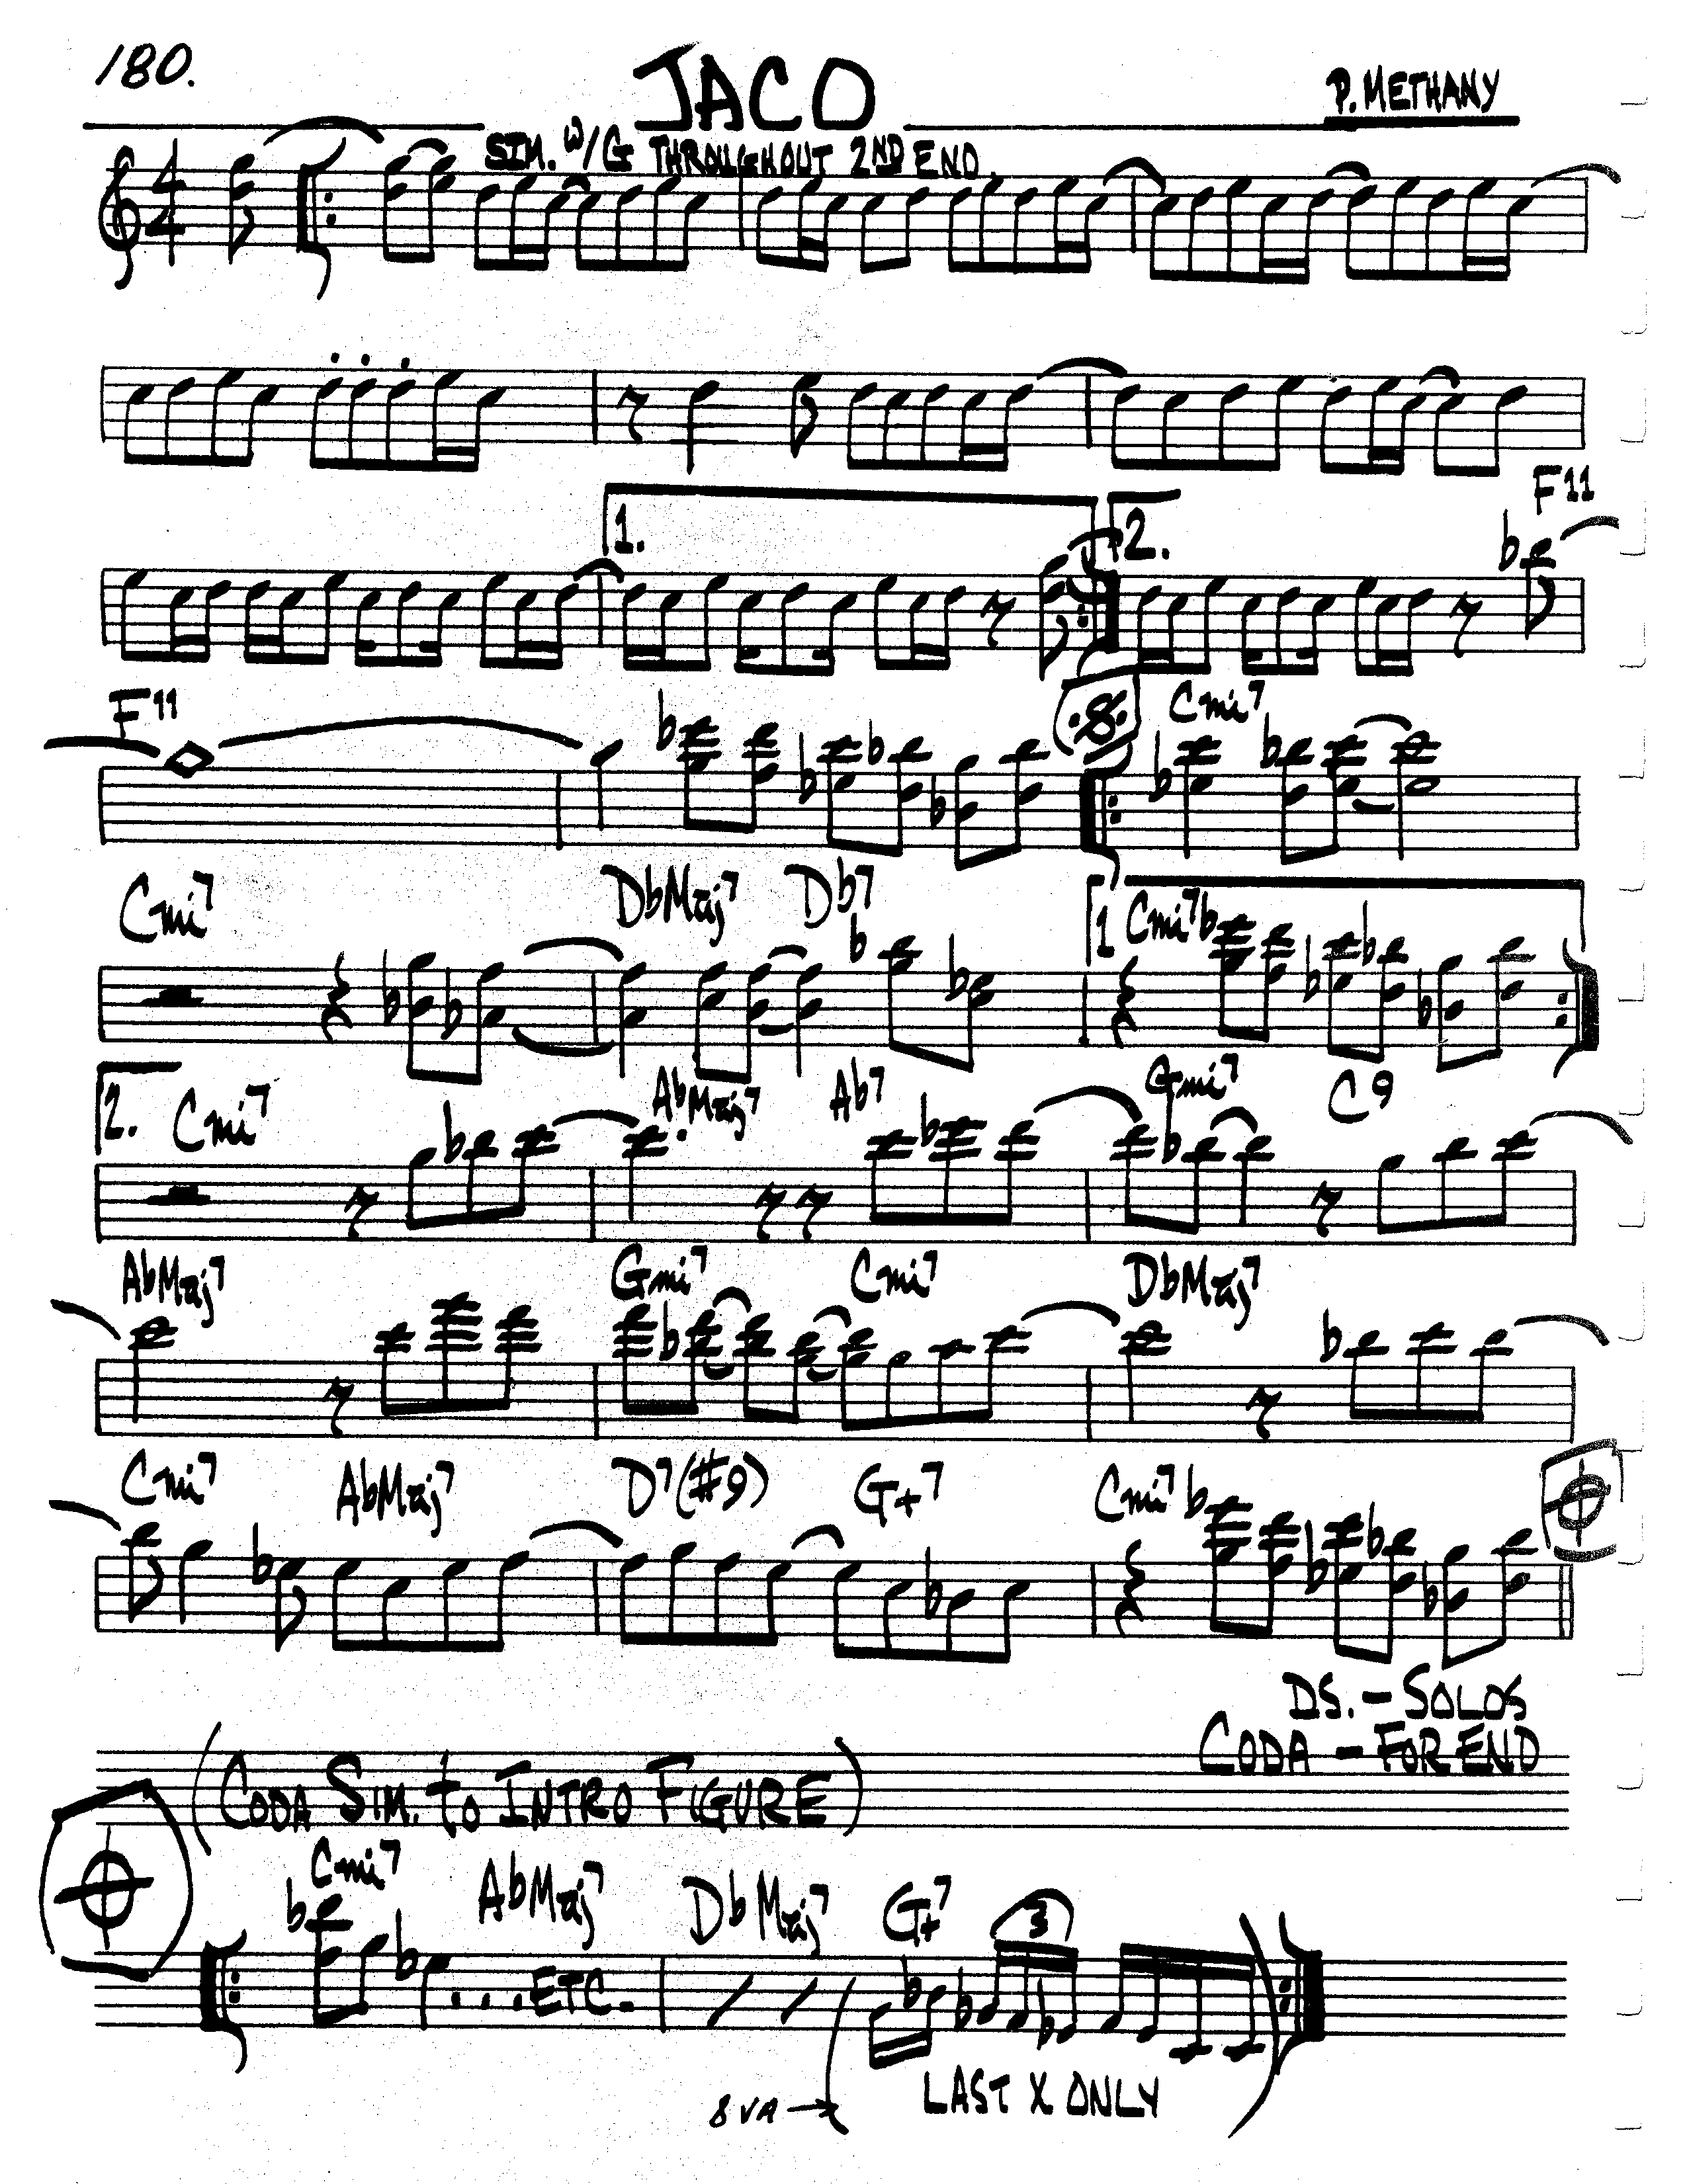 180.
JACO
P. METHANY
SIM. W/G THROUGHOUT 2ND END.
1. 2. F11
F11 Cmi7
Cmi7 DbMaj7 Db7 1 Cmi7
2. Cmi7 AbMaj7 Ab7 Gmi7 C9
AbMaj7 Gmi7 Cmi7 DbMaj7
Cmi7 AbMaj7 D7(#9) G+7 Cmi7
DS. - SOLOS
CODA - FOR END
(CODA SIM. to INTRO FIGURE)
Cmi7 AbMaj7 DbMaj7 G+7
3
...ETC.
8VA → LAST X ONLY